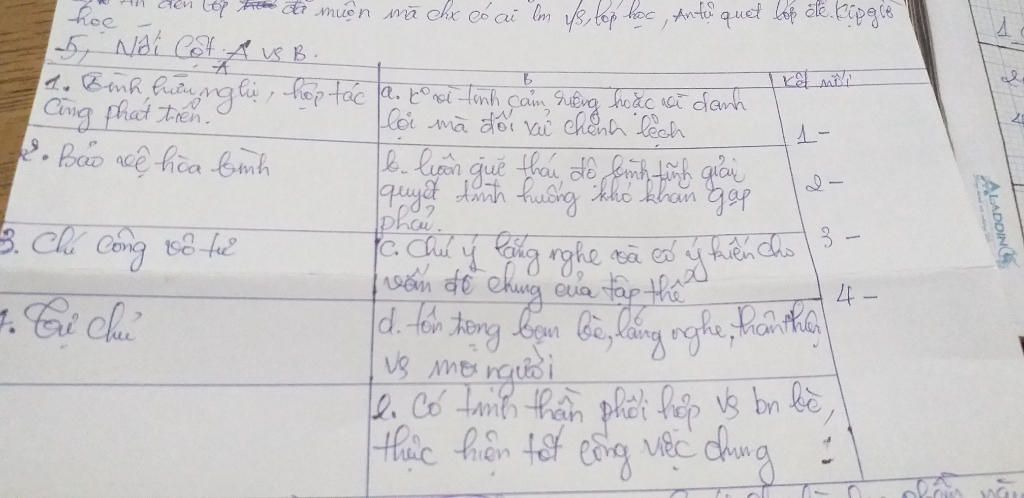 An đến lớp đã muộn mà chx có ai lm vs, lớp học, An tự quet lớp để kịp giờ
học
5, Nối Cột A vs B.
A
B
kết nối
1. Tình hữu nghị, hợp tác
cùng phát triển.
a. ko vì tình cảm riêng hoặc vì danh
lợi mà đối xử chênh lệch
1 -
2. Bảo vệ hòa bình
b. luôn giữ thái độ bình tĩnh giải
quyết tình huống khó khăn gặp
phải.
2 -
3. Chí công vô tư
c. Chú ý lắng nghe và có ý kiến cho
vấn đề chung của tập thể
3 -
4 -
4. Tự chủ
d. tôn trọng bạn bè, lắng nghe, thân thiện
vs mọi người
e. Có tinh thần phối hợp vs bn bè,
thực hiện tốt công việc chung
ALADDIN